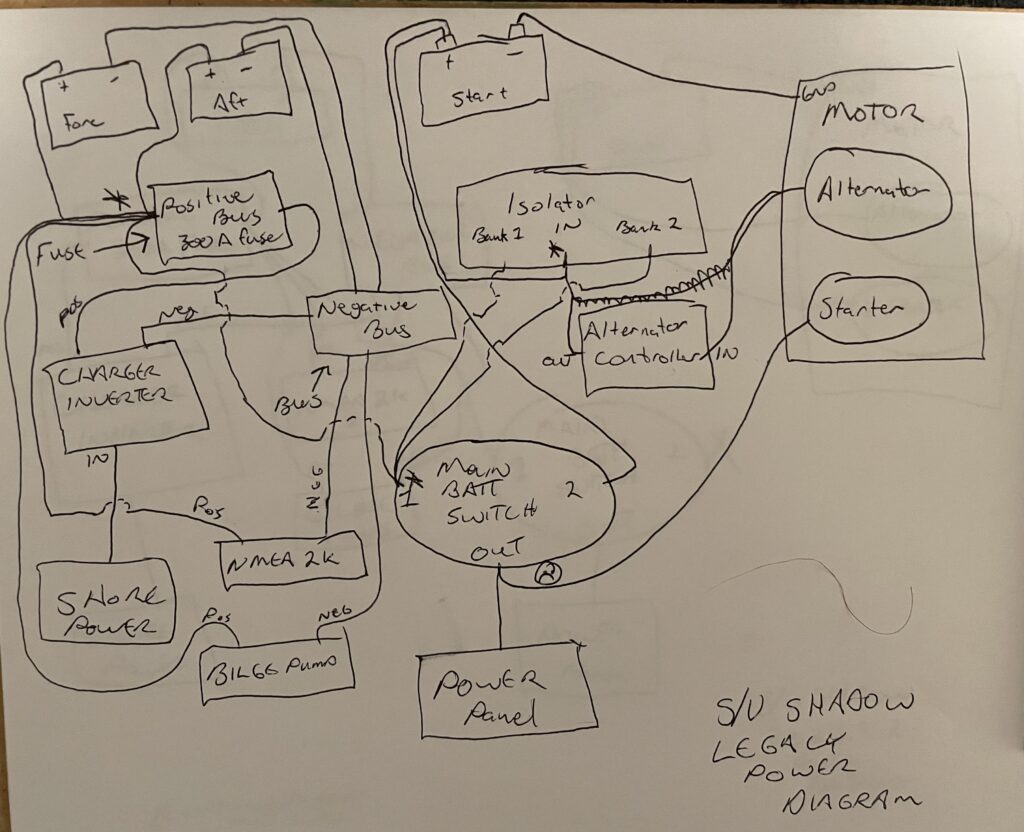 + -
Fore
+ -
Aft
+ -
Start
GND
MOTOR
Alternator
Starter
*
Positive
Bus
300 A fuse
Fuse
Isolator
Bank 1 IN Bank 2
*
pos
Neg
Negative
Bus
Bus
Alternator
Controller
OUT
IN
CHARGER
INVERTER
IN
1*
Main
BATT
SWITCH
2
OUT
2
Pos
NEG
NMEA 2K
SHORE
POWER
Pos
NEG
BILGE PUMP
POWER
Panel
S/V SHADOW
LEGACY
POWER
DIAGRAM